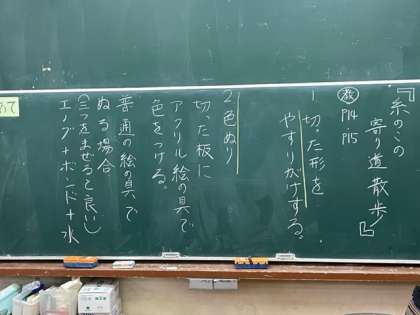 『糸のこの
寄り道散歩』
教 P14.P15
1. 切った形を
やすりがけする。
2 色ぬり
切った板に
アクリル絵の具で
色をつける。
普通の絵の具で
ぬる場合
(三つをまぜると良い)
エノグ+ボンド+水